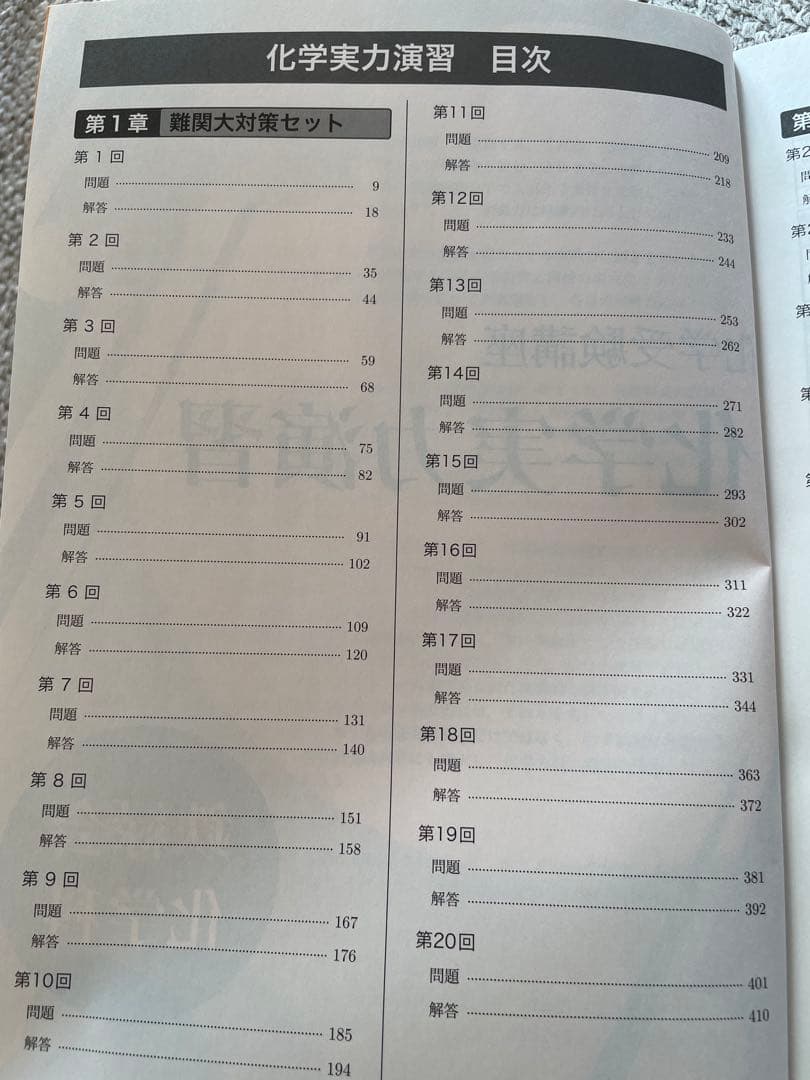 化学実力演習 目次
第1章 難関大対策セット
第1回
問題 9
解答 18
第2回
問題 35
解答 44
第3回
問題 59
解答 68
第4回
問題 75
解答 82
第5回
問題 91
解答 102
第6回
問題 109
解答 120
第7回
問題 131
解答 140
第8回
問題 151
解答 158
第9回
問題 167
解答 176
第10回
問題 185
解答 194
第11回
問題 209
解答 218
第12回
問題 233
解答 244
第13回
問題 253
解答 262
第14回
問題 271
解答 282
第15回
問題 293
解答 302
第16回
問題 311
解答 322
第17回
問題 331
解答 344
第18回
問題 363
解答 372
第19回
問題 381
解答 392
第20回
問題 401
解答 410